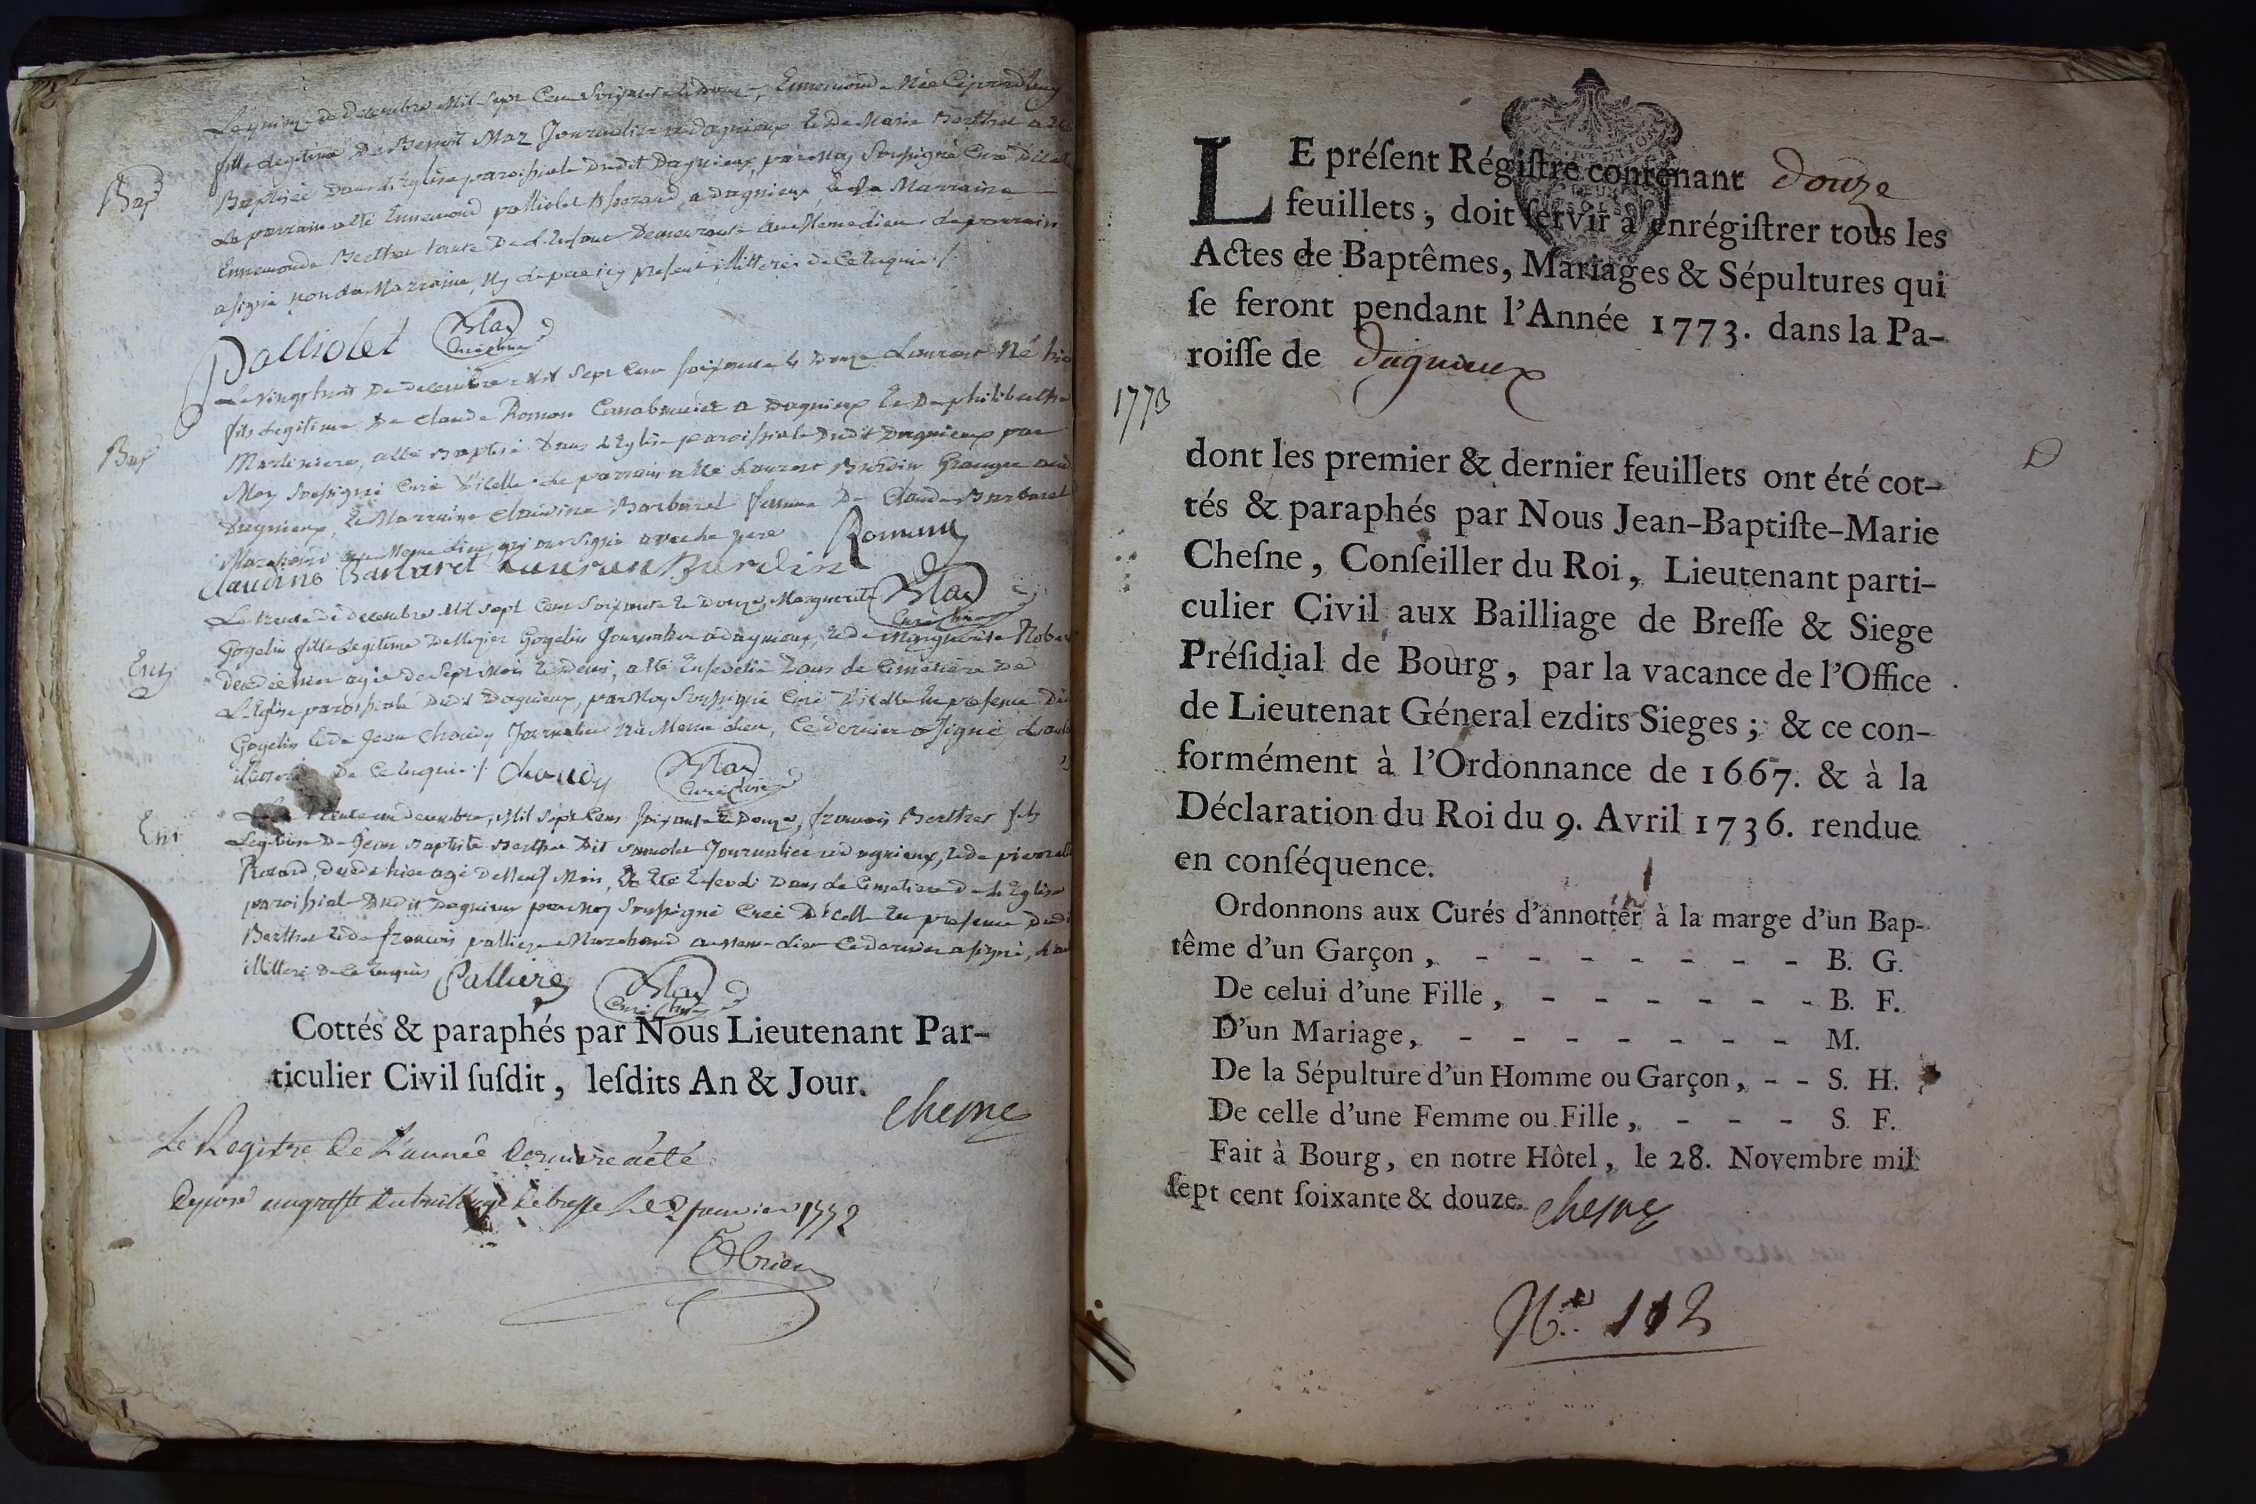 Bap
Le quinze de decembre Mil Sept Cent Soixante et douze, Ennemonde Née
fille Legitime De Benoit Maz Journalier a dagnieux et De Marie Berthet a été
Baptisée dans L'Eglise paroissiale Dudit Dagnieux par Moy Soussigné Curé D'icelle
Le parrain a été Ennemond palliolet a dagnieux et La Marraine
Ennemonde Berthet tante De L'Enfant Demeurante au Meme Lieu Le parrain
a signé non La Marraine, Ny Le pere icy present illitterés de Ce Enquis /.
Palliolet
Blaz
Curé
Bap
Le vingt huit De decembre Mil Sept Cent soixante et Douze Laurent Né hier
fils Legitime De Claude Romon a Dagnieux et De philiberthe
Martiniere, a été Baptisé Dans L'Eglise paroissiale Dudit Dagnieux par
Moy Soussigné Curé D'icelle. Le parrain a été Laurent Burdin Granger au
Dagnieux, et Marraine Claudine Barbaret femme De Claude Barbaret
Marchand au Meme Lieu qui ont signé avec le pere Romon
Claudine Barbaret Lauran Burdin
Blaz
Curé
Ent
Le trente de decembre Mil Sept Cent Soixante et Douze, Marguerite
Gogelin fille Legitime De Gogelin Journalier a dagnieux, et de Marguerite
decedée hier agée de Sept Mois et demi, a été Ensevelie Dans Le Cimetière De
L'Eglise paroissiale Dudit Dagnieux, par Moy Soussigné Curé D'icelle En presence Dudit
Gogelin et de Jean Chaudy Journalier au Meme Lieu, Ce dernier a signé,
De Ce Enquis /. Chaudy
Blaz
Curé
Ent
Le trente un decembre, Mil Sept Cent Soixante et Douze, francois Berthet fils
Legitime De Jean Baptiste Berthet Dit Journalier a dagnieux, et de pierrette
decedé hier agé De Neuf Mois, a été Enseveli Dans Le Cimetiere De L'Eglise
paroissiale Dudit Dagnieux par Moy Soussigné Curé D'icelle En presence Dudit
Berthet et de francois palliere Marchand au Meme Lieu Ce dernier a signé,
illitteré De Ce Enquis Palliere
Blaz
Curé
Cottés & paraphés par Nous Lieutenant Par-
ticulier Civil ſuſdit, leſdits An & Jour.
Chesne
Le Registre De L'année Derniere a été
Deposé au greffe Du bailliage De bresse Le 2 Janvier 1772
LE préſent Régiſtre contenant douze
feuillets, doit ſervir à enrégiſtrer tous les
Actes de Baptêmes, Mariages & Sépultures qui
ſe feront pendant l'Année 1773. dans la Pa-
roiſſe de dagnieux
1773
dont les premier & dernier feuillets ont été cot-
tés & paraphés par Nous Jean-Baptiſte-Marie
Cheſne, Conſeiller du Roi, Lieutenant parti-
culier Civil aux Bailliage de Breſſe & Siege
Préſidial de Bourg, par la vacance de l'Office
de Lieutenat Géneral ezdits Sieges; & ce con-
formément à l'Ordonnance de 1667. & à la
Déclaration du Roi du 9. Avril 1736. rendue
en conſéquence.
Ordonnons aux Curés d'annotter à la marge d'un Bap-
tême d'un Garçon, - - - - - - - B. G.
De celui d'une Fille, - - - - - - B. F.
D'un Mariage, - - - - - - - M.
De la Sépulture d'un Homme ou Garçon, - - S. H.
De celle d'une Femme ou Fille, - - - S. F.
Fait à Bourg, en notre Hôtel, le 28. Novembre mil
ſept cent ſoixante & douze. Chesne
N.º 112